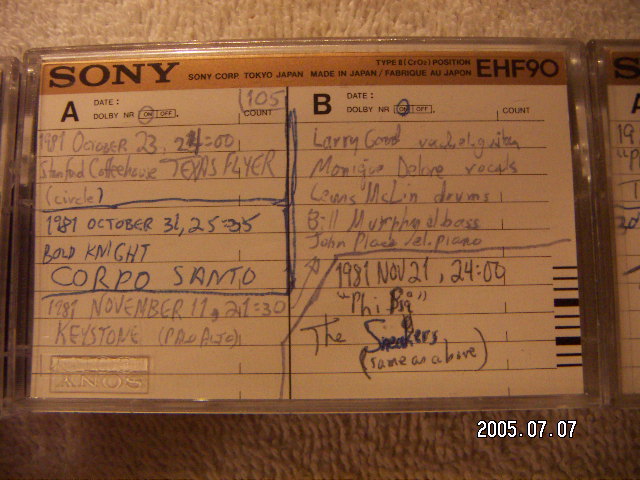 SONY
SONY CORP. TOKYO JAPAN MADE IN JAPAN / FABRIQUE AU JAPON
TYPE II (CrO2) POSITION
EHF90
A
DATE :
DOLBY NR ON OFF
105
COUNT
1981 OCTOBER 23, 24:00
Stanford Coffeehouse TEXAS FLYER
(circle)
1981 OCTOBER 31, 25:35
BOLD KNIGHT
CORPO SANTO
1981 NOVEMBER 11, 21:30
KEYSTONE (PALO ALTO)
SONY
B
DATE :
DOLBY NR ON OFF
COUNT
Larry Good
Monique vocals
Lewis McLin drums
Bill Murphy el bass
John Place /el. piano
1981 NOV 21, 24:00
"Phi Psi"
The Sneakers
(same as above)
S
A
19
2005.07.07